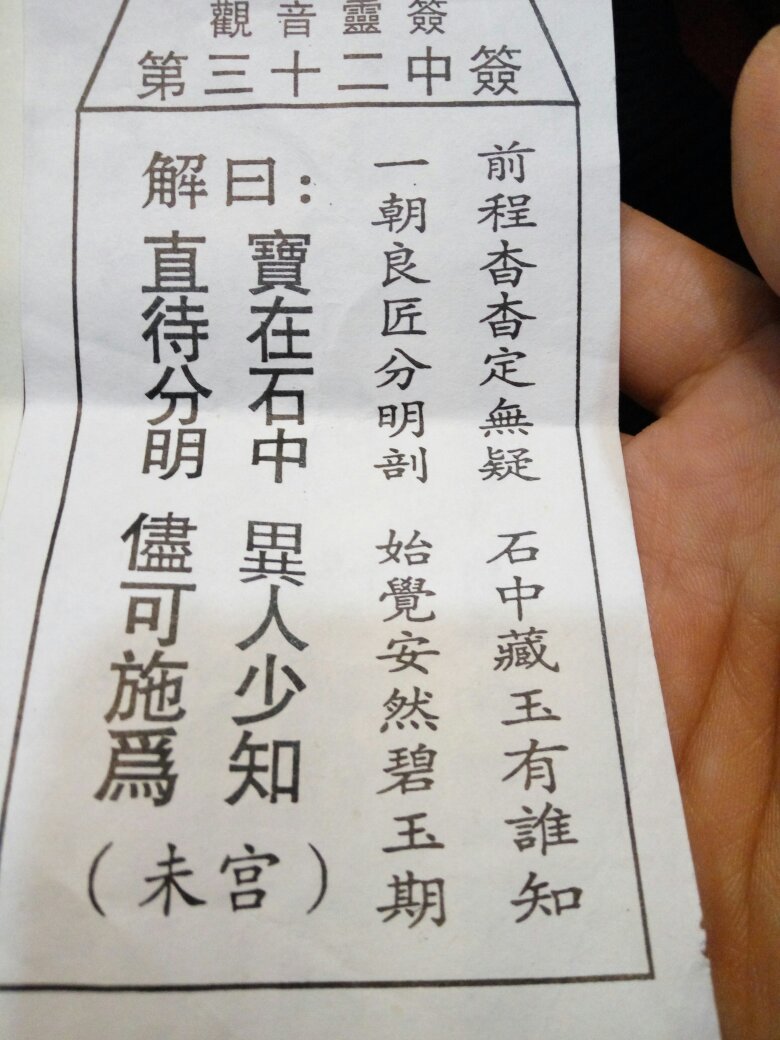 觀音靈簽
第三十二中簽
前程杳杳定無疑 石中藏玉有誰知
一朝良匠分明剖 始覺安然碧玉期
解曰：
寶在石中 異人少知
直待分明 儘可施爲
（未宫）